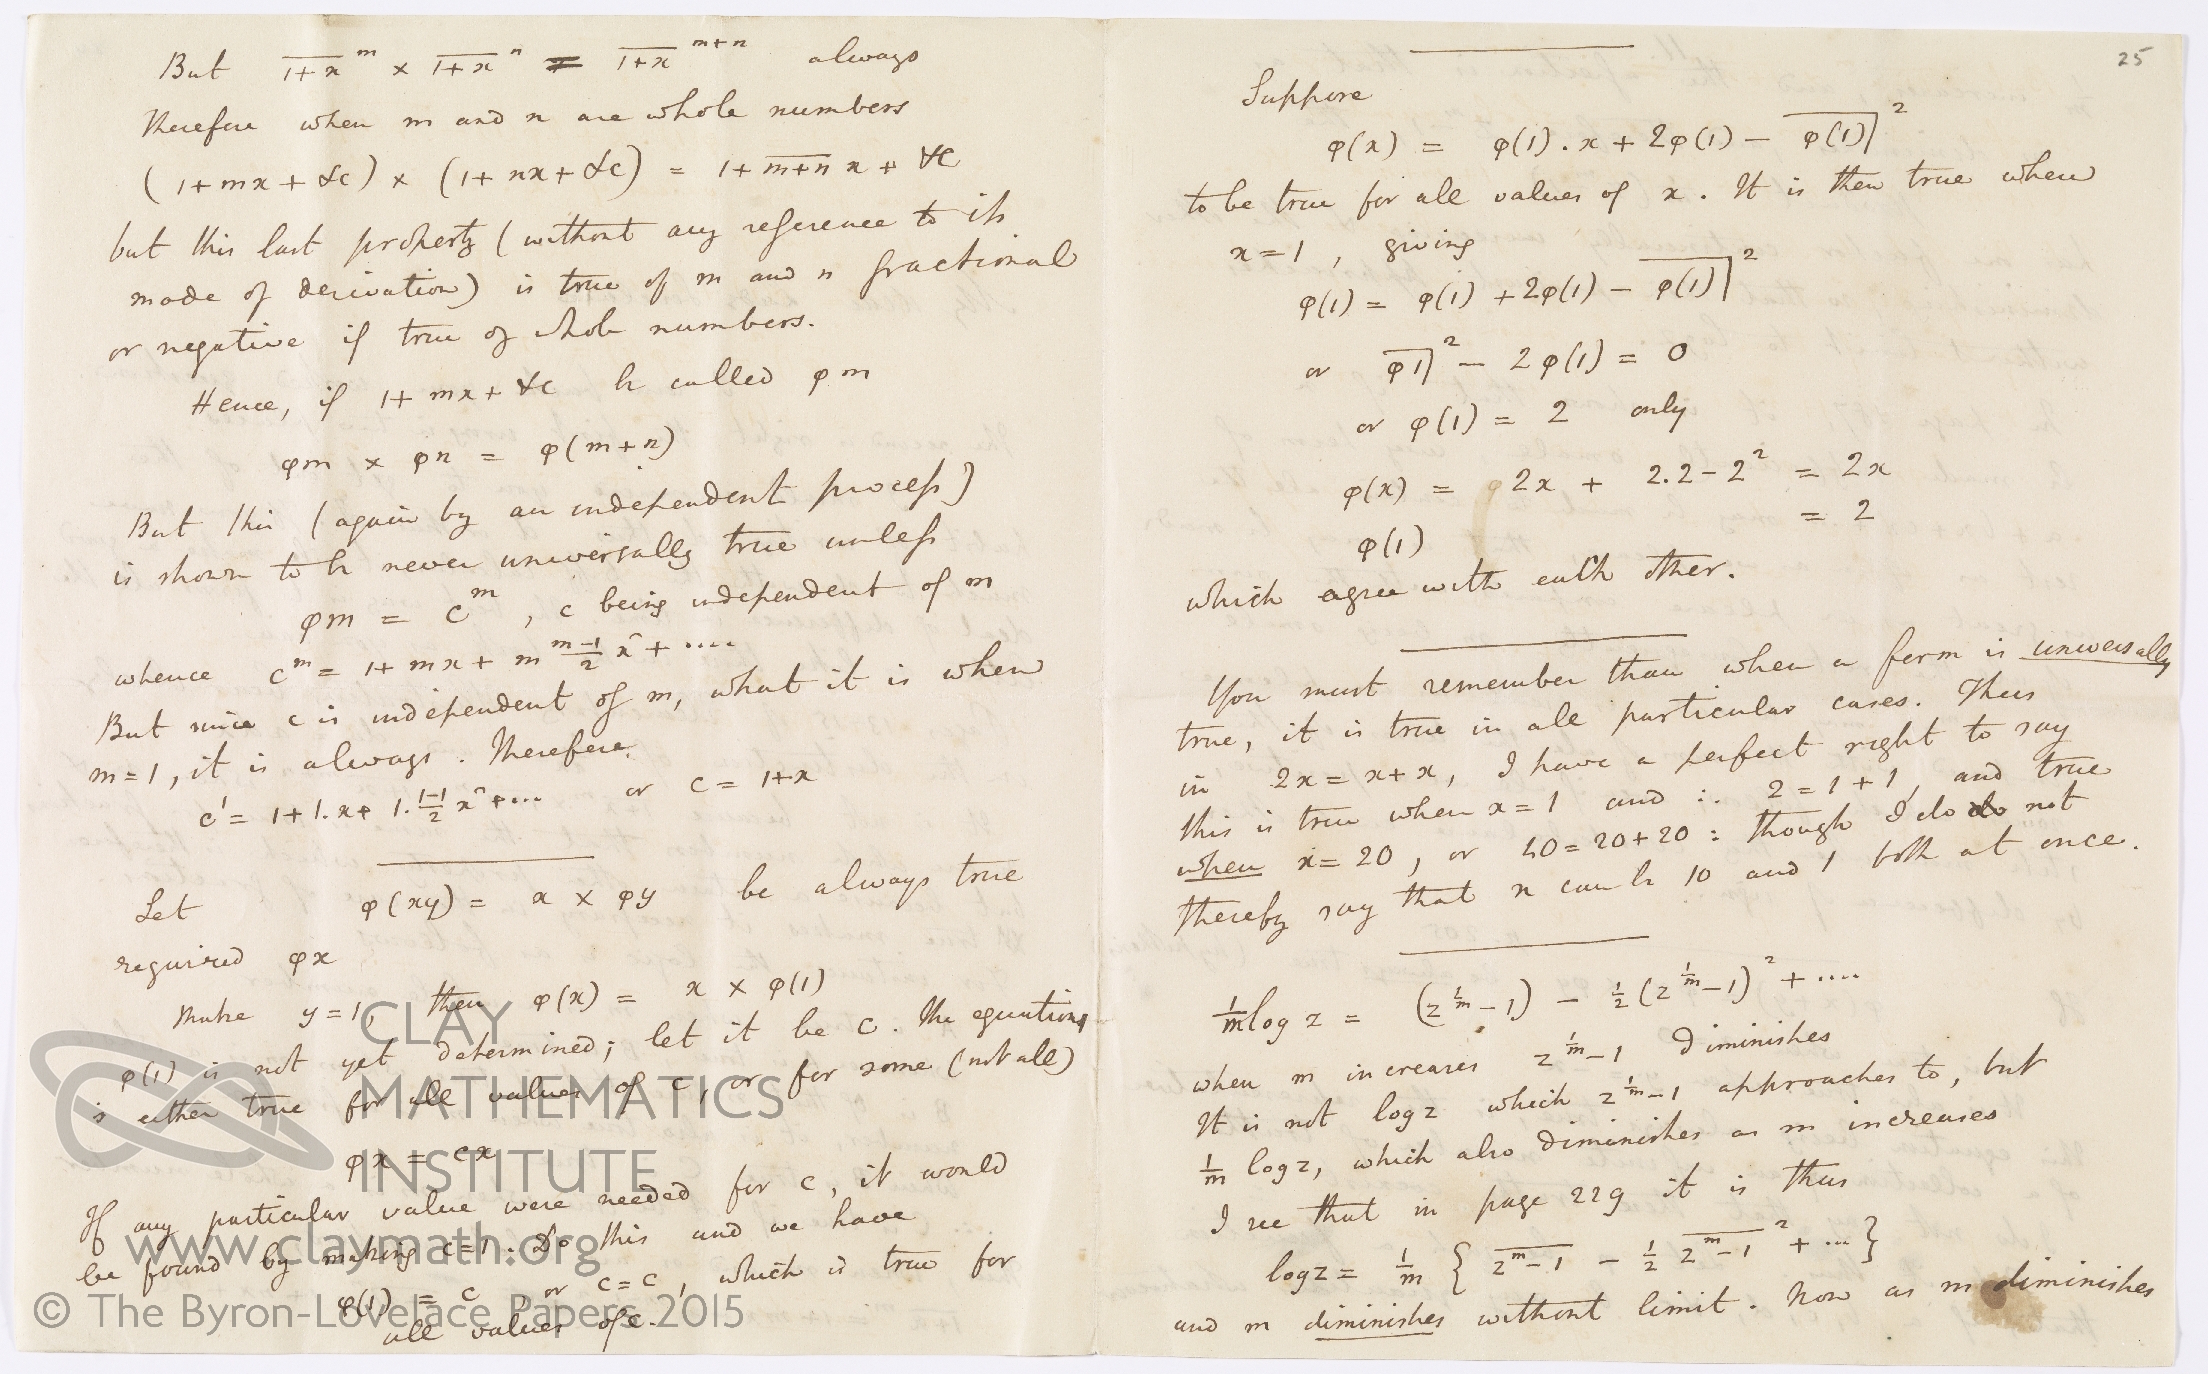 But (1+x)^m × (1+x)^n = (1+x)^{m+n} always
therefore when m and n are whole numbers
(1+mx+&c) × (1+nx+&c) = 1+(m+n)x + &c
but this last property (without any reference to its
mode of derivation) is true of m and n fractional
or negative if true of whole numbers.
Hence, if 1+mx+&c be called φm
φm × φn = φ(m+n)
But this (again by an independent process)
is shown to be never universally true unless
φm = c^m, c being independent of m
whence c^m = 1+mx+m (m-1)/2 x^2 + ....
But since c is independent of m, what it is when
m=1, it is always. Therefore
c^1 = 1+1.x+ 1.(1-1)/2 x^2+... or c = 1+x
Let φ(xy) = x × φy be always true
required φx
Make y=1, then φ(x) = x × φ(1)
φ(1) is not yet determined; let it be c. The equation,
is either true for all values of c, or for some (not all)
φx = cx
If any particular value were needed for c, it would
be found by making c=1. Do this and we have
φ(1) = c, or c=c, which is true for
all values of c.
25
Suppose
φ(x) = φ(1).x + 2φ(1) − (φ(1))^2
to be true for all values of x. It is then true when
x=1, giving
φ(1) = φ(1) + 2φ(1) − (φ(1))^2
or (φ1)^2 − 2φ(1) = 0
or φ(1) = 2 only
φ(x) = 2x + 2.2−2^2 = 2x
φ(1) = 2
which agree with each other.
You must remember than when a form is universally
true, it is true in all particular cases. Thus
in 2x = x+x, I have a perfect right to say
this is true when x=1 and ∴ 2=1+1, and true
when x=20, or 40=20+20: though I do do not
thereby say that x can be 10 and 1 both at once.
1/m log z = (z^{1/m}−1) − 1/2 (z^{1/m}−1)^2 + ....
when m increases z^{1/m}−1 diminishes
It is not log z which z^{1/m}−1 approaches to, but
1/m log z, which also diminishes as m increases
I see that in page 229 it is thus
log z = 1/m { z^m−1 − 1/2 (z^m−1)^2 + ... }
and m diminishes without limit. Now as m diminishes
CLAY
MATHEMATICS
INSTITUTE
www.claymath.org
© The Byron-Lovelace Papers 2015